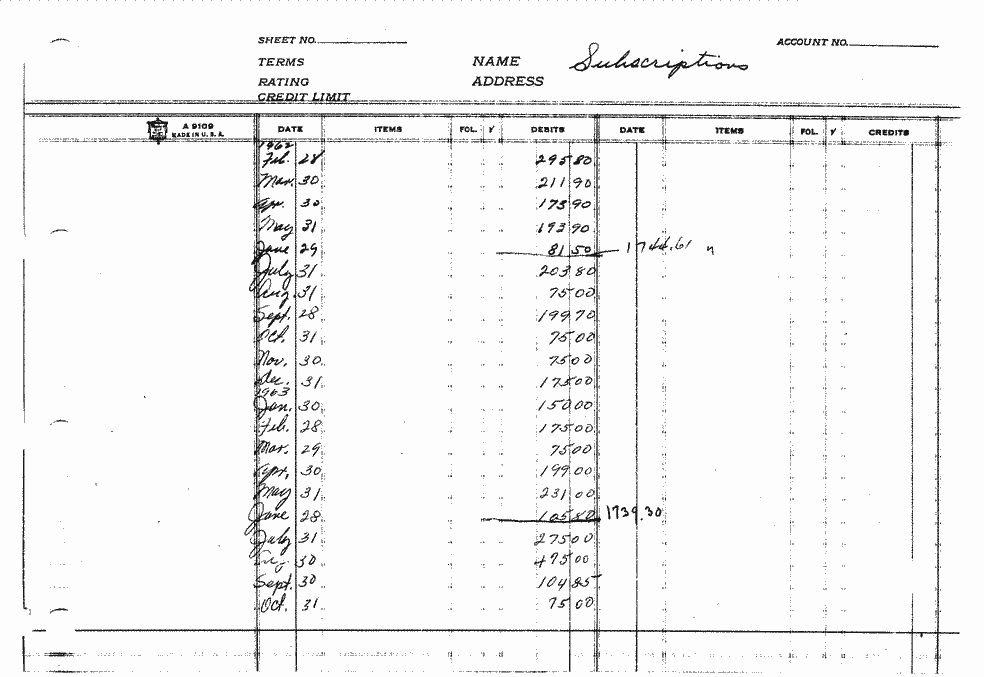 SHEET NO.
ACCOUNT NO.
TERMS
NAME Subscriptions
RATING
ADDRESS
CREDIT LIMIT
A 9109
MADE IN U. S. A.
DATE ITEMS FOL. Y DEBITS DATE ITEMS FOL. Y CREDITS
1962
Feb. 28 295 80
Mar. 30 211 90
Apr. 30 173 90
May 31 193 90
June 29 81 50 1744.61
July 31 203 80
Aug. 31 75 00
Sept. 28 199 70
Oct. 31 75 00
Nov. 30 75 00
Dec. 31 175 00
1963
Jan. 30 150 00
Feb. 28 175 00
Mar. 29 75 00
Apr. 30 199 00
May 31 231 00
June 28 105 80 1739.30
July 31 275 00
30 475 00
Sept. 30 104 85
Oct. 31 75 00